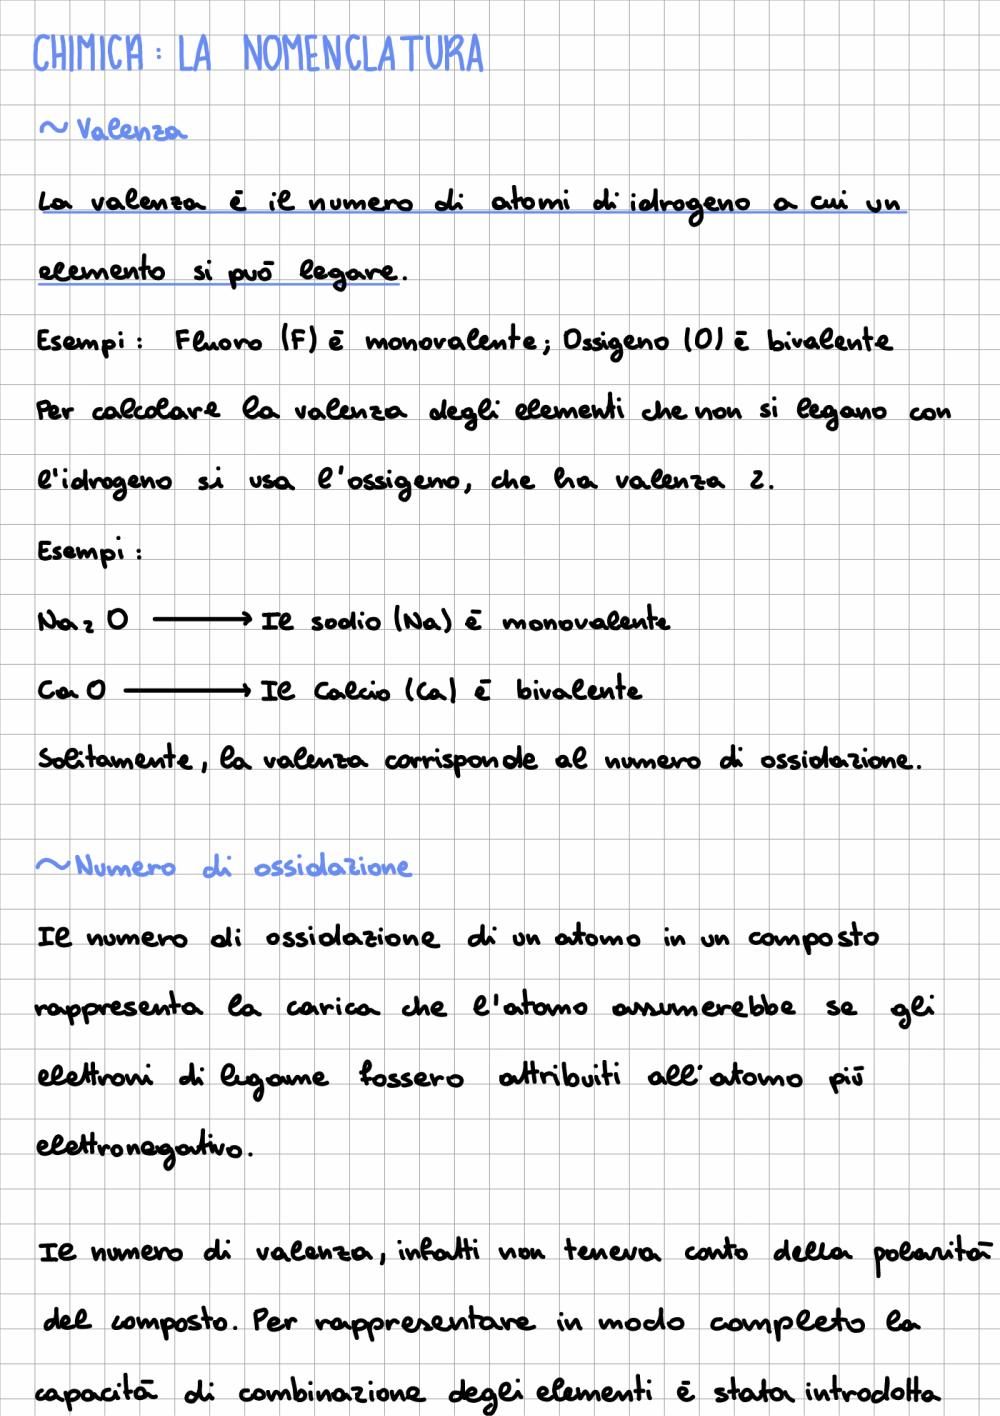 CHIMICA: LA NOMENCLATURA
~ Valenza
La valenza è il numero di atomi di idrogeno a cui un
elemento si può legare.
Esempi: Fluoro (F) è monovalente; Ossigeno (O) è bivalente
Per calcolare la valenza degli elementi che non si legano con
l'idrogeno si usa l'ossigeno, che ha valenza 2.
Esempi:
Na₂O ⟶ Il sodio (Na) è monovalente
CaO ⟶ Il Calcio (Ca) è bivalente
Solitamente, la valenza corrisponde al numero di ossidazione.
~ Numero di ossidazione
Il numero di ossidazione di un atomo in un composto
rappresenta la carica che l'atomo assumerebbe se gli
elettroni di legame fossero attribuiti all'atomo più
elettronegativo.
Il numero di valenza, infatti non teneva conto della polarità
del composto. Per rappresentare in modo completo la
capacità di combinazione degli elementi è stata introdotta